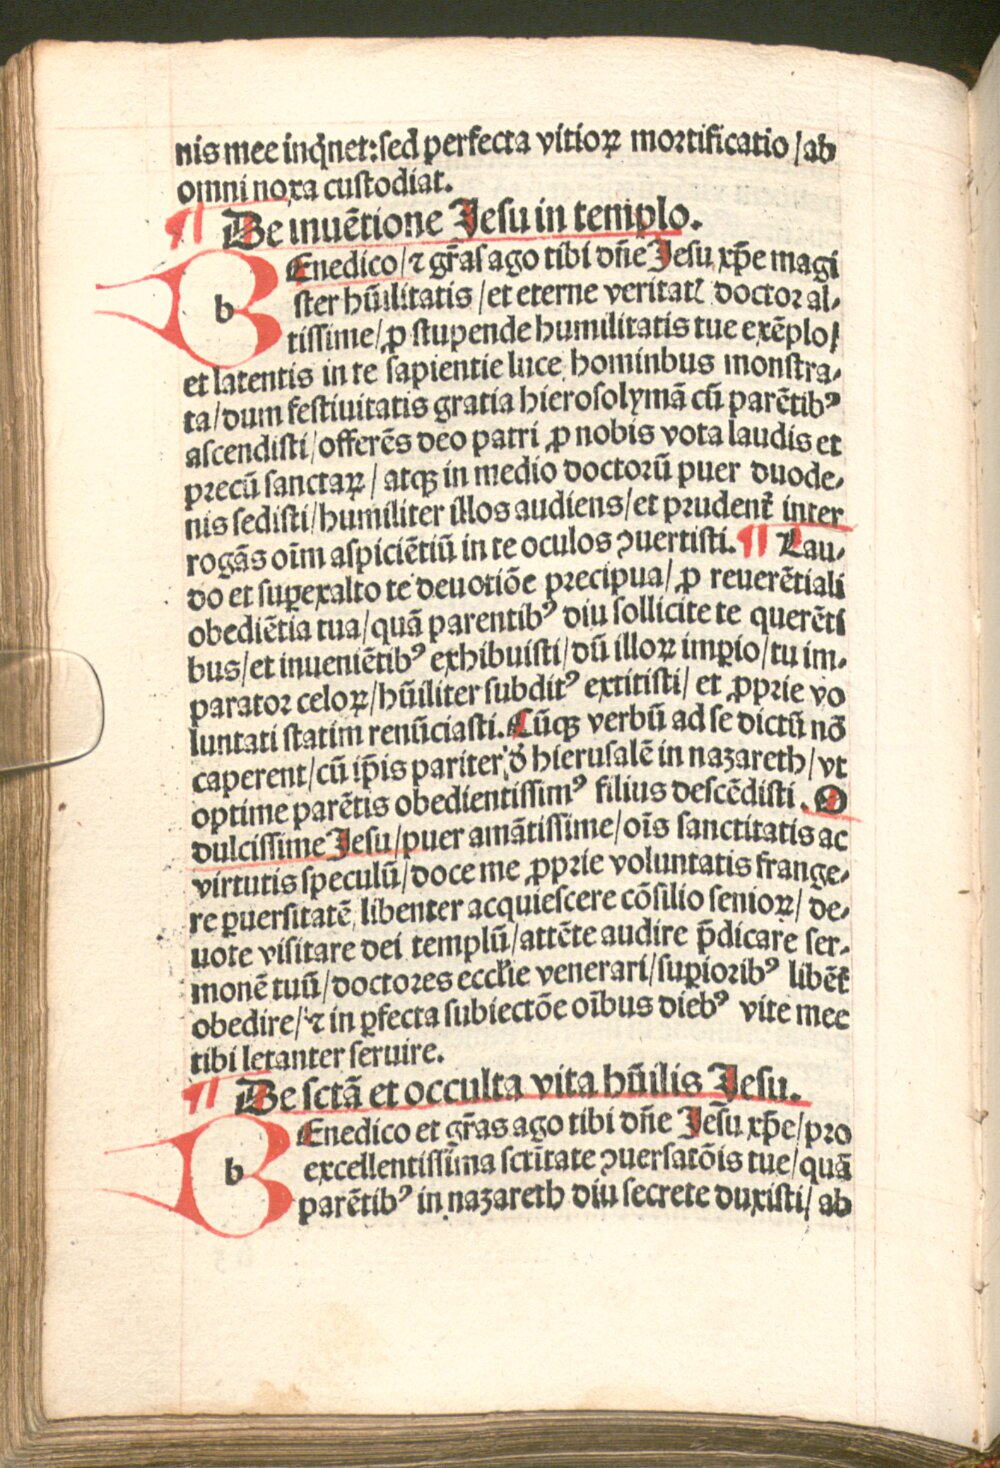 nis mee inq̄net: sed perfecta vitioꝝ mortificatio / ab
omni noxa custodiat.
¶ De inuētione Jesu in templo.
BEnedico / ⁊ gr̄as ago tibi dn̄e Jesu xp̄e magi
b ster hūilitatis / et eterne veritatꝭ doctor al-
tissime / ꝓ stupende humilitatis tue exēplo /
et latentis in te sapientie luce hominbus monstra-
ta / dum festiuitatis gratia hierosolymā cū parētibꝰ
ascendisti / offerēs deo patri ꝓ nobis vota laudis et
precū sanctaꝝ / atqꝫ in medio doctorū puer duode-
nis sedisti / humiliter illos audiens / et prudent̄ inter
rogās oīm aspiciētiū in te oculos ꝯuertisti. ¶ Lau-
do et suꝑexalto te deuotiōe precipua / ꝓ reuerētiali
obediētia tua / quā parentibꝰ diu sollicite te querēti
bus / et inueniētibꝰ exhibuisti / dū illoꝝ imꝑio / tu im-
parator celoꝝ / hūiliter subditꝰ extitisti / et ꝓprie vo
luntati statim renūciasti. Cūqꝫ verbū ad se dictū nō
caperent / cū ip̄is pariter d̄ hierusalē in nazareth / vt
optime parētis obedientissimꝰ filius descēdisti. O
dulcissime Jesu / puer amātissime / oīs sanctitatis ac
virtutis speculū / doce me ꝓprie voluntatis frange-
re ꝑuersitatē libenter acquiescere cōsilio senioꝝ / de-
uote visitare dei templū / attēte audire p̄dicare ser-
monē tuū / doctores eccl̄ie venerari / suꝑioribꝰ libēt̄
obedire / ⁊ in ꝑfecta subiectōe oībus diebꝰ vite mee
tibi letanter seruire.
¶ De sctā et occulta vita hūilis Jesu.
BEnedico et gr̄as ago tibi dn̄e Jesu xp̄e / pro
b excellentissīma sctītate ꝯuersatōis tue / quā
parētibꝰ in nazareth diu secrete duxisti / ab